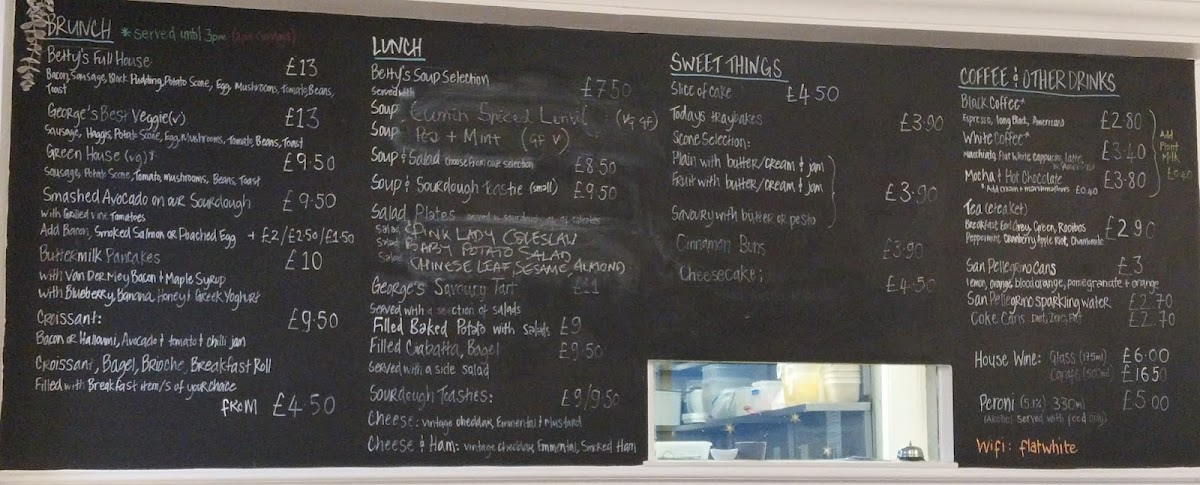 BRUNCH *served until 3pm
Betty's Full House £13
Bacon, Sausage, Black Pudding, Potato Scone, Egg, Mushrooms, Tomato, Beans, Toast
George's Best Veggie (v) £13
Sausage, Haggis, Potato Scone, Egg, Mushrooms, Tomato, Beans, Toast
Green House (vg)* £9·50
Sausage, Potato Scone, Tomato, mushrooms, Beans, Toast
Smashed Avocado on our Sourdough £9·50
with Grilled Vine Tomatoes
Add Bacon, Smoked Salmon or Poached Egg + £2/£2·50/£1·50
Buttermilk Pancakes £10
with Van Der Mey Bacon & Maple Syrup
with Blueberry, Banana, Honey & Greek Yoghurt
Croissant: £9·50
Bacon or Halloumi, Avocado & tomato & chilli jam
Croissant, Bagel, Brioche, Breakfast Roll
Filled with Breakfast item/s of your choice
from £4·50
LUNCH
Betty's Soup Selection £7·50
Served with
Soup Cumin Spiced Lentil (vg gf)
Soup Pea + Mint (gf v)
Soup & Salad choose from our selection £8·50
Soup & Sourdough Toastie (small) £9·50
Salad Plates
Salad PINK LADY COLESLAW
Salad BABY POTATO SALAD
Salad CHINESE LEAF, SESAME, ALMOND
George's Savoury Tart £11
Served with a selection of salads
Filled Baked Potato with salads £9
Filled Ciabatta, Bagel £9·50
Served with a side salad
Sourdough Toasties: £9/9·50
Cheese: vintage cheddar, Emmental & Mustard
Cheese & Ham: vintage cheddar, Emmental, Smoked Ham
SWEET THINGS
Slice of cake £4·50
Todays traybakes £3·90
Scone Selection:
Plain with butter/cream & jam
Fruit with butter/cream & jam £3·90
Savoury with butter or pesto
Cinnamon Buns £3·90
Cheesecake; £4·50
COFFEE & OTHER DRINKS
Black Coffee* £2·80
Espresso, Long Black, Americano
White Coffee* £3·40
Macchiato, Flat White, Cappuccino, Latte,
Mocha & Hot Chocolate £3·80
* Add cream & marshmallows £0·40
Add Plant Milk £0·40
Tea (eteaket) £2·90
Breakfast, Earl Grey, Green, Rooibos
Peppermint, Cranberry Apple Riot, Chamomile
San Pellegrino cans £3
lemon, orange, blood orange, pomegranate & orange
San Pellegrino sparkling water £2·70
Coke Cans Diet, Zero, Fat £2·70
House Wine: Glass (175ml) £6·00
Carafe (500ml) £16·50
Peroni (5.1%) 330ml £5·00
(Alcohol served with food only)
Wifi: flatwhite